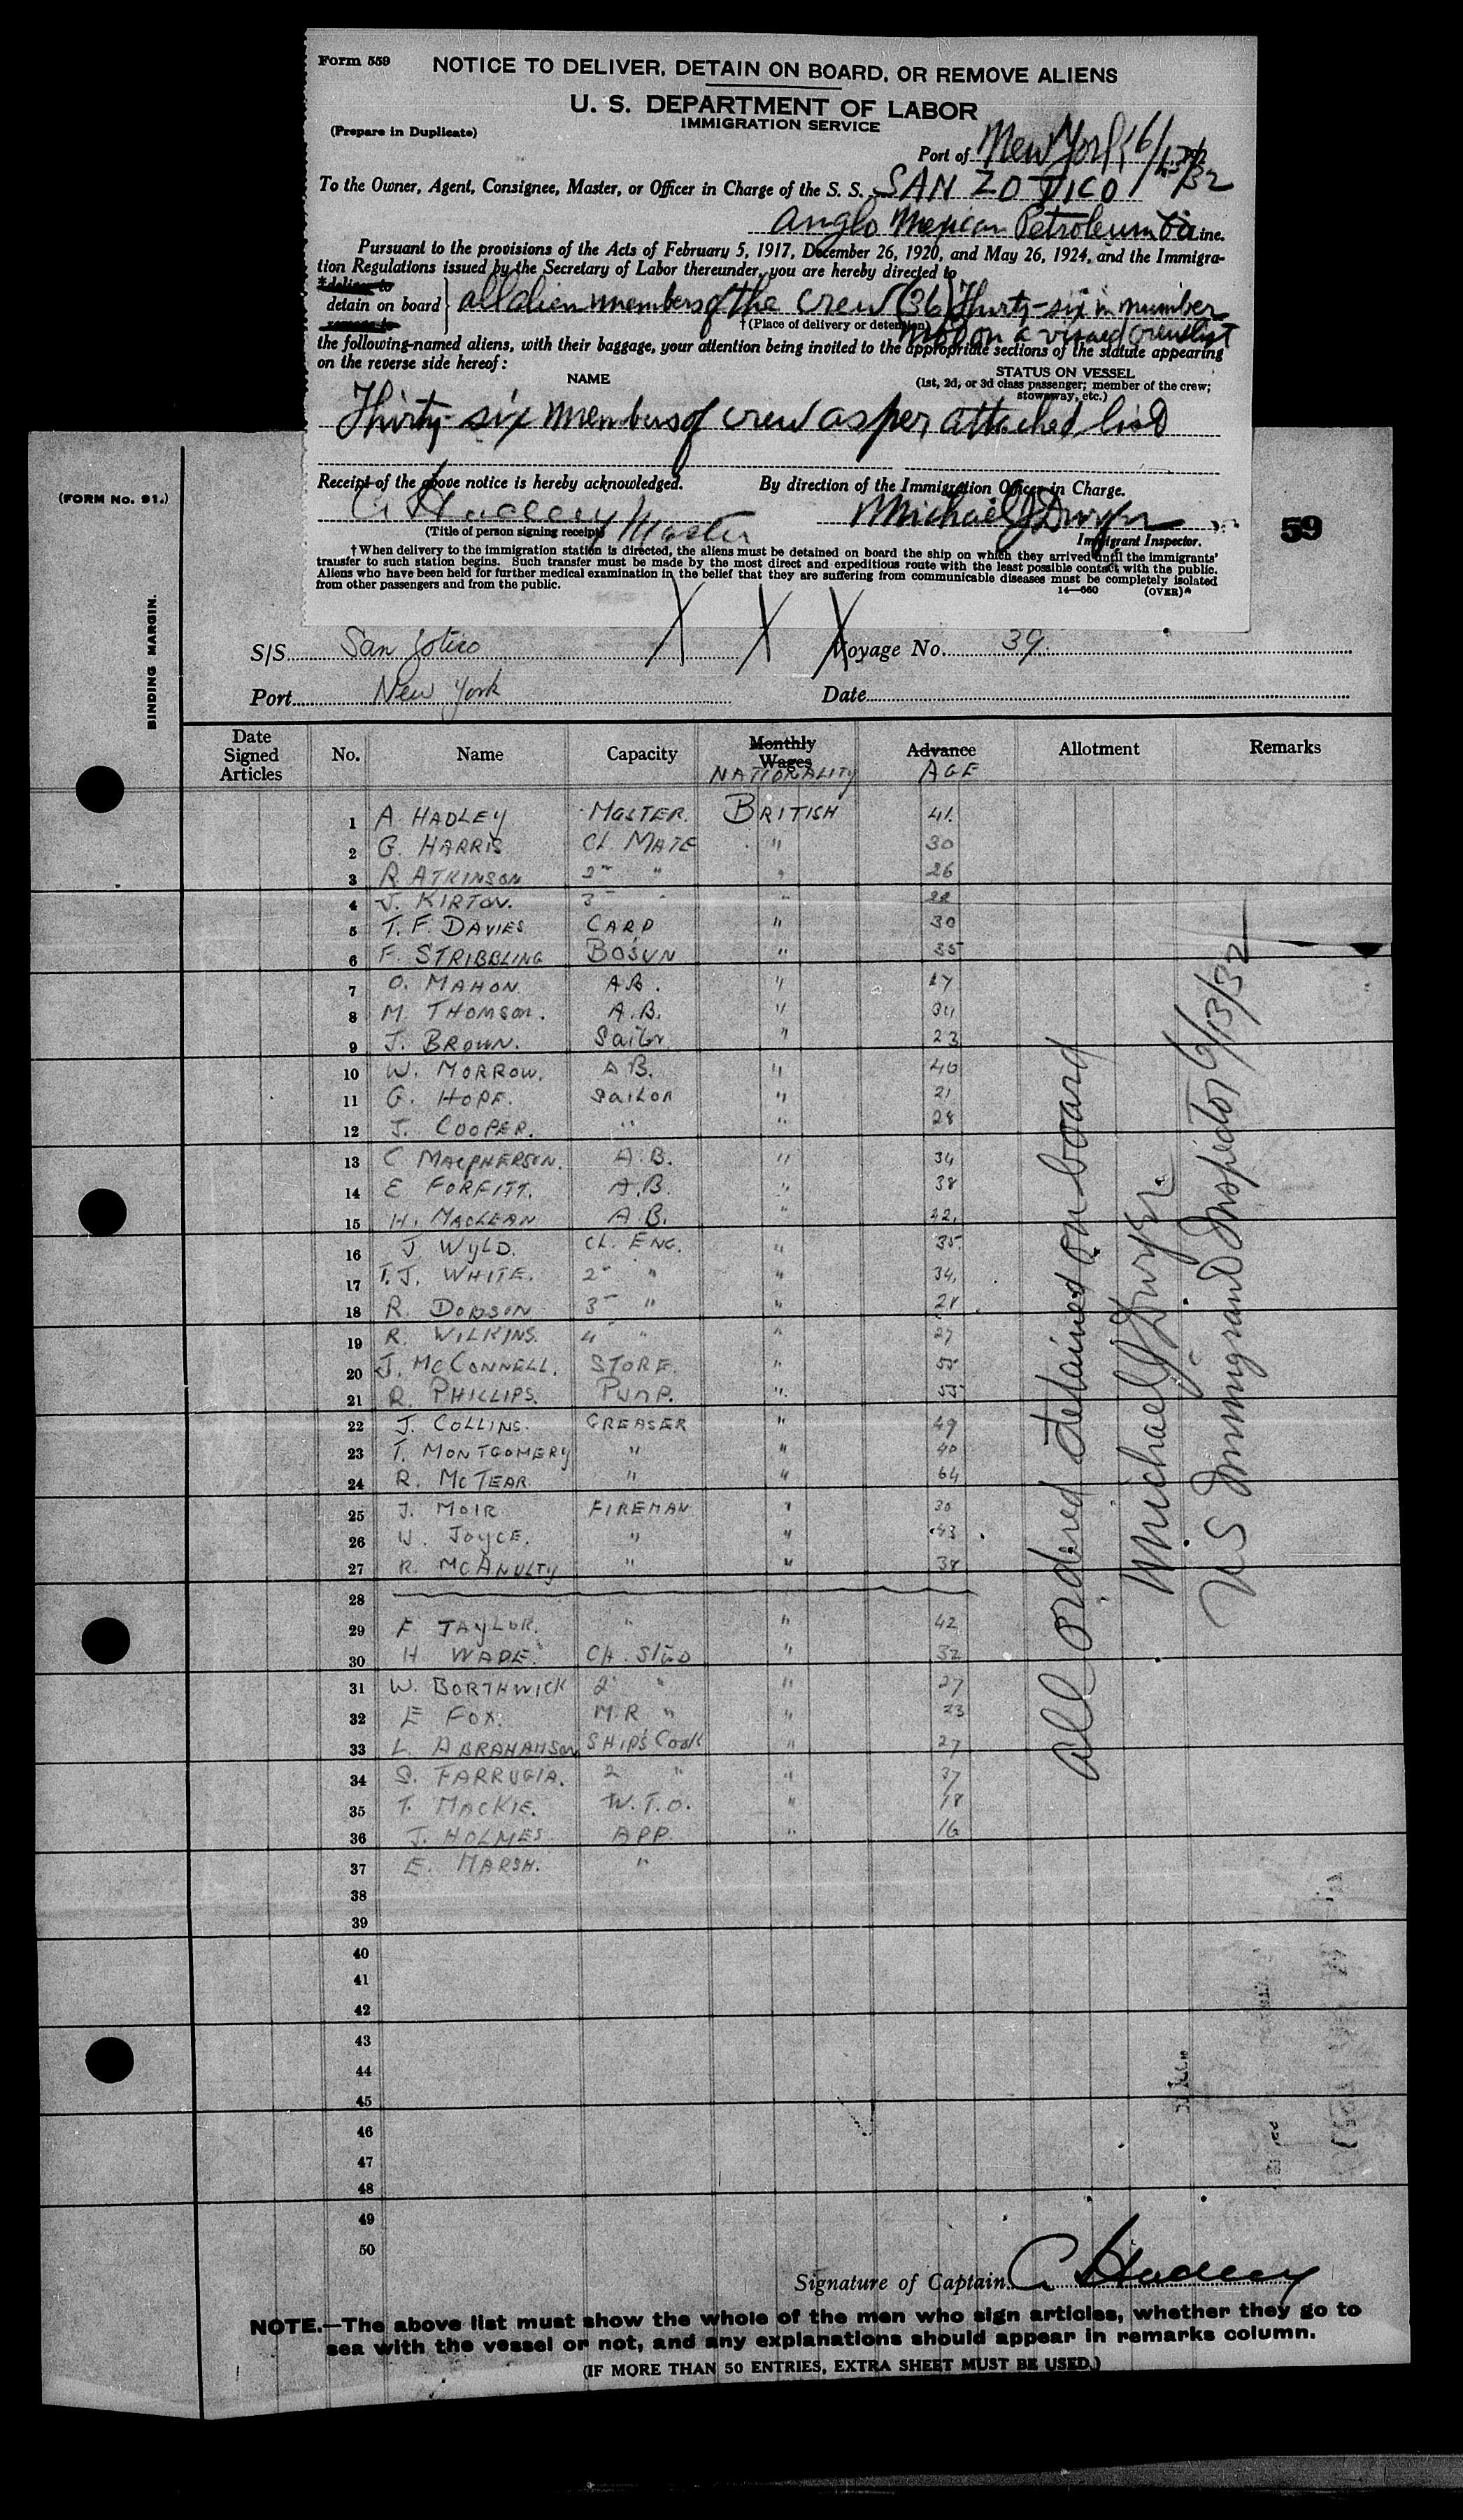 Form 559
NOTICE TO DELIVER, DETAIN ON BOARD, OR REMOVE ALIENS
U. S. DEPARTMENT OF LABOR
IMMIGRATION SERVICE
(Prepare in Duplicate)
Port of New York 6/13/32
To the Owner, Agent, Consignee, Master, or Officer in Charge of the S. S. SAN ZOTICO
Anglo Mexican Petroleum Co Line.
Pursuant to the provisions of the Acts of February 5, 1917, December 26, 1920, and May 26, 1924, and the Immigra-
tion Regulations issued by the Secretary of Labor thereunder, you are hereby directed to
*deliver to
detain on board all alien members of the crew (36) Thirty-six in number
remove to
†(Place of delivery or detention) not on a visaed crewlist
the following-named aliens, with their baggage, your attention being invited to the appropriate sections of the statute appearing
on the reverse side hereof:
NAME
STATUS ON VESSEL
(1st, 2d, or 3d class passenger; member of the crew;
stowaway, etc.)
Thirty-six members of crew as per attached list
Receipt of the above notice is hereby acknowledged. By direction of the Immigration Officer in Charge.
A Hadley Master Michael J Dwyer
(Title of person signing receipt) Immigrant Inspector.
†When delivery to the immigration station is directed, the aliens must be detained on board the ship on which they arrived until the immigrants'
transfer to such station begins. Such transfer must be made by the most direct and expeditious route with the least possible contact with the public.
Aliens who have been held for further medical examination in the belief that they are suffering from communicable diseases must be completely isolated
from other passengers and from the public.
14—660 (OVER)
(FORM No. 91.)
59
BINDING MARGIN.
S/S San Zotico Voyage No. 39.
Port New York Date
Date Signed Articles No. Name Capacity Monthly Wages NATIONALITY Advance AGE Allotment Remarks
1 A HADLEY MASTER. BRITISH 41.
2 G. HARRIS CH. MATE " 30
3 R ATKINSON 2ND " " 26
4 J. KIRTON. 3 " "
5 T. F. DAVIES CARP " 30
6 F. STRIBBLING BOSUN " 35
7 O. MAHON. A.B. "
8 M. THOMSON. A.B. " 34
9 J. BROWN. Sailor " 23
10 W. MORROW. A B. " 40
11 G. HOPE. SAILOR " 21
12 J. COOPER. " " 28
13 C MACPHERSON. A.B. " 34
14 E FORFITT. A.B. " 38
15 H. MACLEAN A B. " 42.
16 J WYLD. CH. ENG. " 35.
17 T.J. WHITE. 2ND " " 34.
18 R. DOBSON 3 " "
19 R. WILKINS. 4 " " 27
20 J. MCCONNELL. STORE. " 55
21 R. PHILLIPS. PUMP. " 55
22 J. COLLINS. GREASER " 49
23 T. MONTGOMERY " " 40
24 R. MCTEAR " " 64
25 J. MOIR FIREMAN " 30
26 W. JOYCE. " " 43
27 R. MCANULTY " " 38
28
29 F TAYLOR. " " 42
30 H WADE. CH. STWD " 32
31 W. BORTHWICK 2 " " 27
32 E FOX. M.R " " 23
33 L. ABRAHAMSON SHIP'S COOK " 27
34 S. FARRUGIA. 2 " " 37
35 T. MACKIE. W.T.O. " 18
36 J. HOLMES APP. " 16
37 E. MARSH. "
38
39
40
41
42
43
44
45
46
47
48
49
50
All ordered detained on board
Michael J Dwyer
US Immigrant Inspector 6/13/32
Signature of Captain A Hadley
NOTE.—The above list must show the whole of the men who sign articles, whether they go to
sea with the vessel or not, and any explanations should appear in remarks column.
(IF MORE THAN 50 ENTRIES, EXTRA SHEET MUST BE USED.)